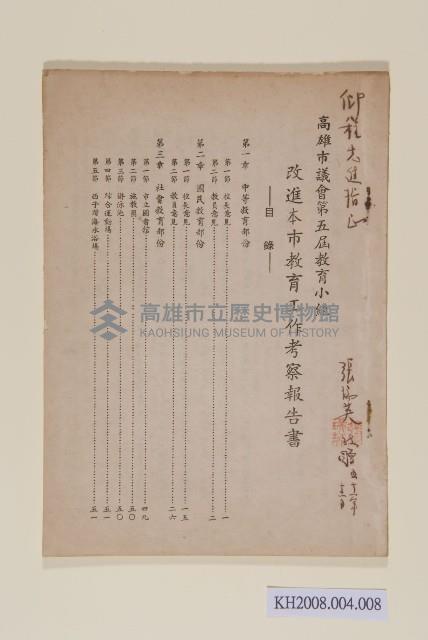 仰程先進指正
高雄市議會第五屆教育小組
改進本市教育工作考察報告書
—目錄—
第一章 中等教育部份
第一節 校長意見……一
第二節 教員意見……二
第二章 國民教育部份
第一節 校長意見……一五
第二節 教員意見……二六
第三章 社會教育部份
第一節 市立圖書館……四九
第二節 施教團……五〇
第三節 游泳池……五〇
第四節 綜合運動場……五一
第五節 西子灣海水浴場……五一
高雄市立歷史博物館
KAOHSIUNG MUSEUM OF HISTORY
KH2008.004.008